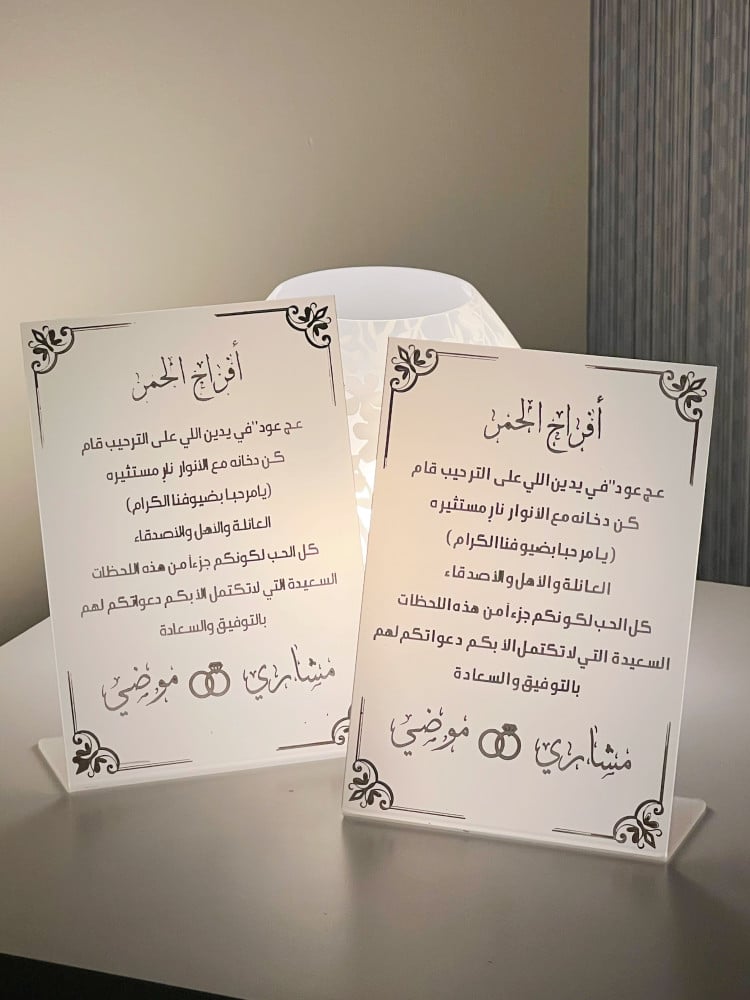 أفراح الحمر
عج عود"في يدين اللي على الترحيب قام
كن دخانه مع الأنوار نارٍ مستثيره
(يامرحبا بضيوفنا الكرام)
العائلة والأهل والأصدقاء
كل الحب لكونكم جزءاً من هذه اللحظات
السعيدة التي لاتكتمل الأ بكم دعواتكم لهم
بالتوفيق والسعادة
مشاري موضي
أفراح الحمر
عج عود"في يدين اللي على الترحيب قام
كن دخانه مع الأنوار نارٍ مستثيره
(يامرحبا بضيوفنا الكرام)
العائلة والأهل والأصدقاء
كل الحب لكونكم جزءاً من هذه اللحظات
السعيدة التي لاتكتمل الأ بكم دعواتكم لهم
بالتوفيق والسعادة
مشاري موضي